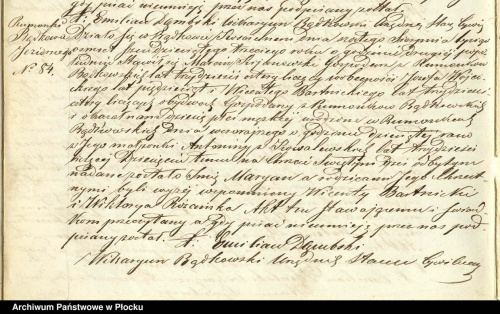 X. Emilian Dąmbski Wikaryusz Bądkowski Urzędnik Stanu Cywil
Rumunki
Bądkowa
Jeziornego
№ 84.
Działo się w Bądkowie Kościelnem Dnia szóstego Sierpnia tysiąc
ośmset pięćdziesiątego trzeciego roku o godzinie drugiej popo
łudniu Stawił się Marcin Gospodarz z Rumunków
Bądkowskich lat trzydzieści cztery liczący w obecności Józefa
lat pięćdziesiąt i Wincentego Bartnickiego lat trzydzieści
cztery liczących obydwóch Gospodarzy z Rumunków Bądkowskich
i okazał nam Dziecię płci męzkiej urodzone w Rumunkach
Bądkowskich Dnia wczorajszego o godzinie dziesiątej rano
z Jego małżonki Antoniny z Kowalewskich lat trzydzieści
mającej Dziecięciu temu na Chrzcie Świętym dziś odbytym
nadane zostało Imię Maryan a rodzicami Jego Chrzest
nymi byli wyżej wspomniony Wincenty Bartnicki
i Wiktorya Rożańska Akt ten stawającemu i świad
kom przeczytany a gdy pisać nieumieją przez nas pod
pisany został. X. Emilian Dąmbski
Wikaryusz Bądkowski Urzędnik Stanu Cywilnego
Archiwum Państwowe w Płocku